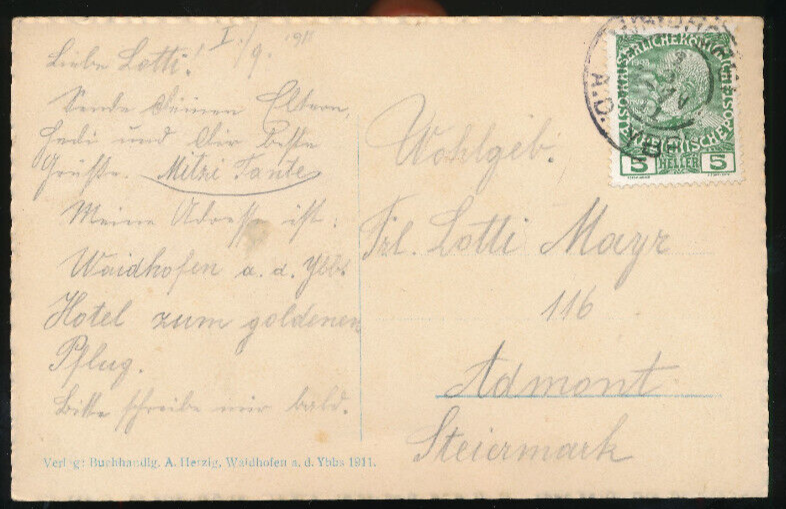 I./9. 1911
Liebe Lotti!
Sende Deinen Eltern,
Hedi und Dir beste
Grüsse. Mitzi Tante
Meine Adresse ist:
Waidhofen a. d. Ybbs.
Hotel zum goldenen
Pflug.
Bitte schreibe mir bald.
Verlag: Buchhandlg. A. Herzig, Waidhofen a. d. Ybbs 1911.
KAISERLICHE KÖNIGLICHE
ÖSTERREICHISCHE POST
5 HELLER 5
Wohlgeb.
Frl. Lotti Mayr
116
Admont
Steiermark